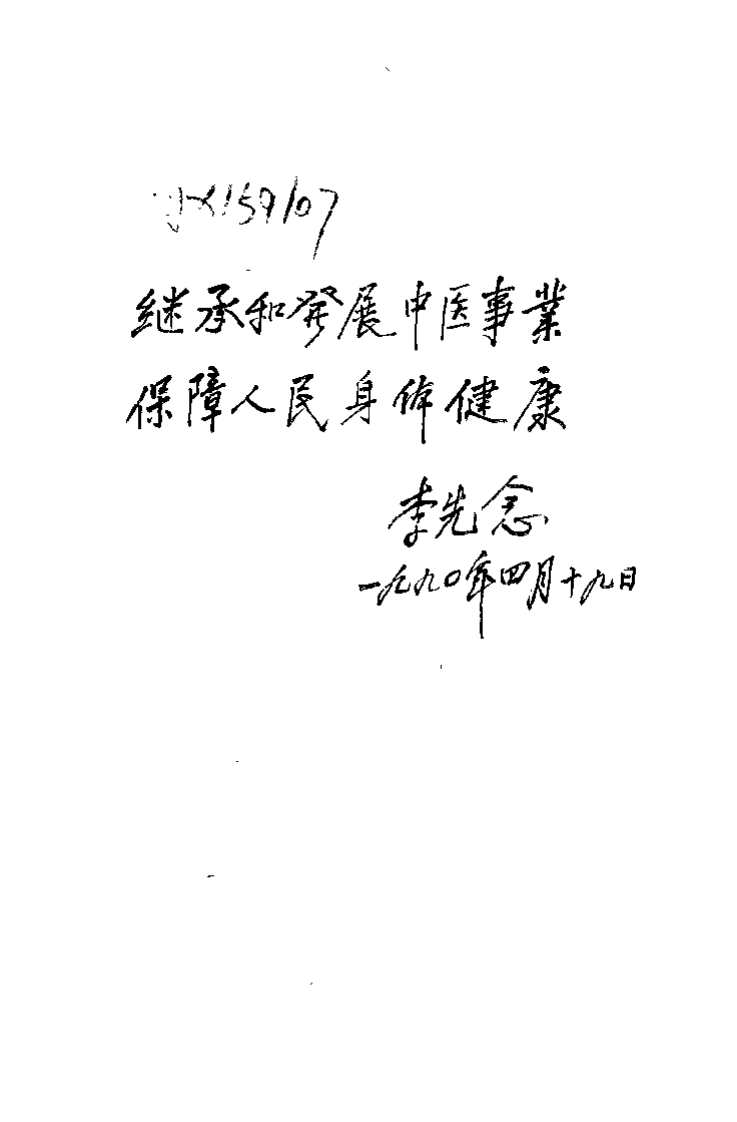 159107
继承和發展中医事業
保障人民身体健康
李先念
一九九〇年四月十九日